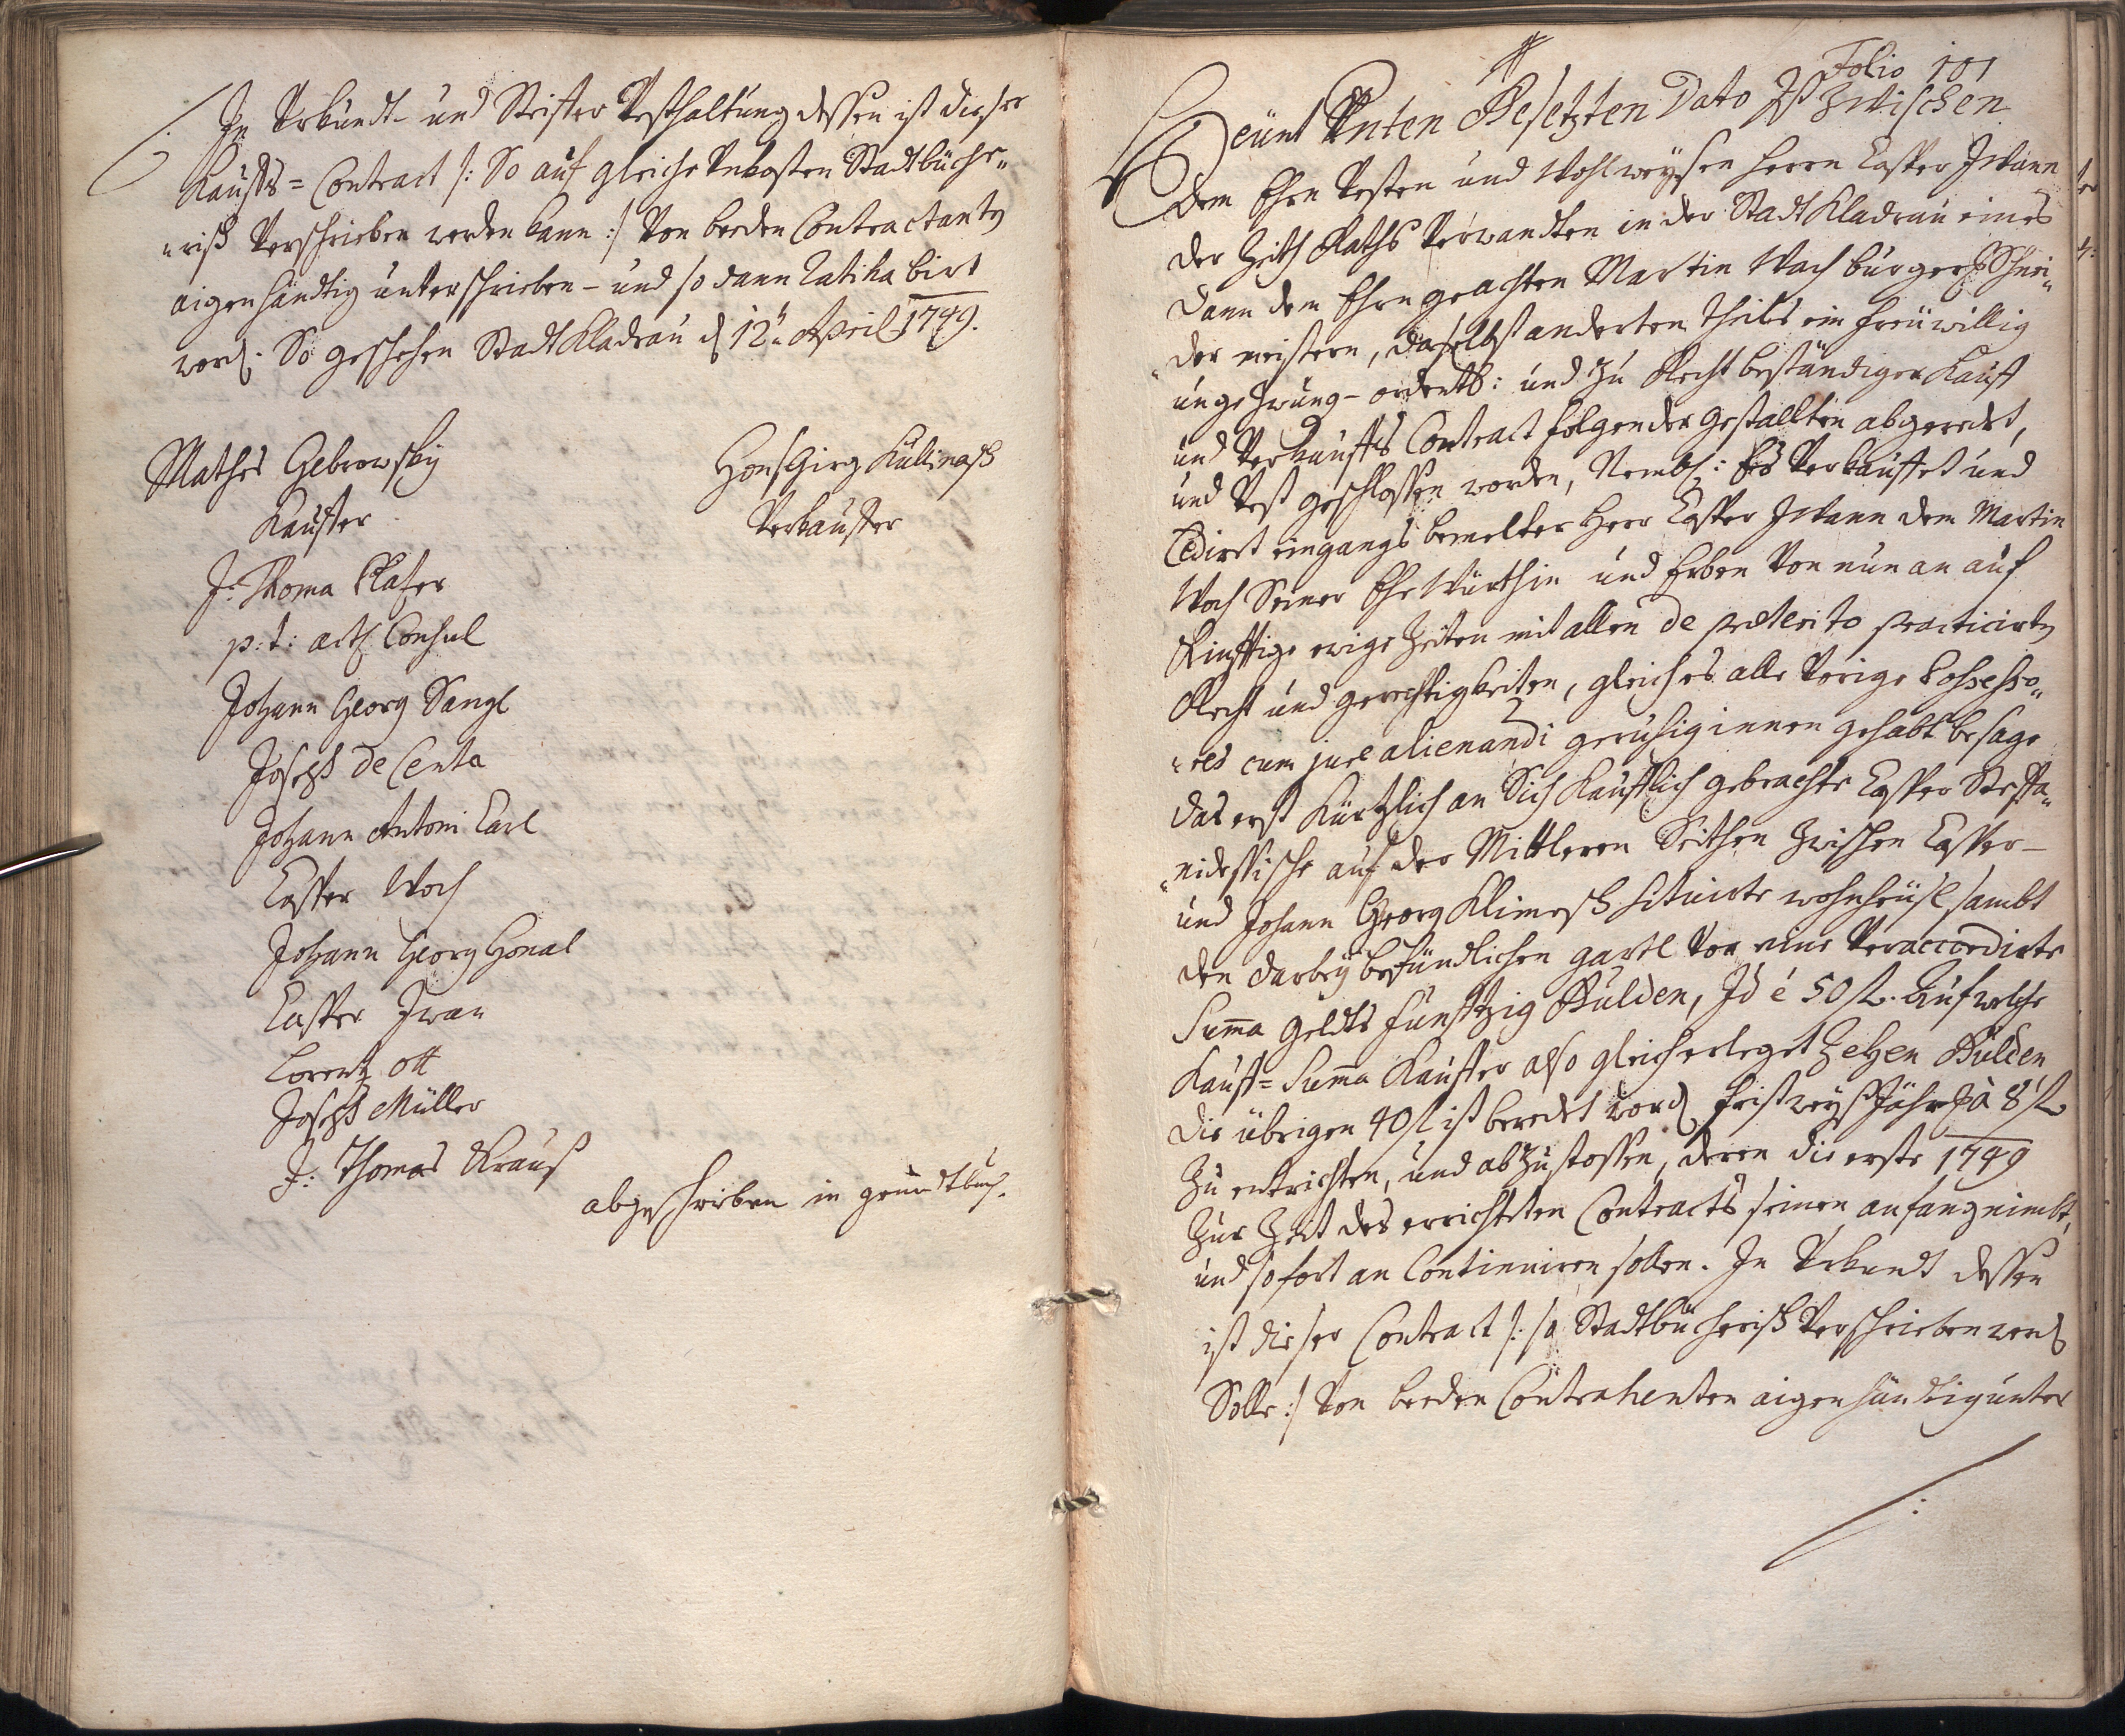 In Urkundt- und Steifter Vesthaltung dessen ist dieser
Kauffs=Contract /: So auf gleiche Unkosten Stadtbüche„
„risch Verschrieben werden kann :/ Von beeden Contractanten
aigenhändtig unterschrieben - und so dann Ratihabirt
word. So geschehen Stadt Kladrau d 12ten April 1749.
Mathes Gebrowsky
Kauffer
Hanß Girg Kullinasch
Verkauffer
J: Thoma Plaser
p: t: act. Consul
Johann Georg Sangl
Joseph de Centa
Johann Antoni Carl
Casper Woch
Johann Georg Honal
Casper Iwan
Lorentz Ott
Joseph Müller
J: Thomas Krauß
abgeschrieben in grundtbuch.
Folio 101
Heünt Unten Gesetzten Dato Ist Zwischen
dem Ehrn Vesten und Wohlweysen Herrn Casper Iwann
der Zeith Raths Verwandten in der Stadt Kladrau eines
dann dem Ehrngeachten Martin Woch burger Schnei„
„der meistern, daselbst anderten Theils ein freüwillig
ungezwung- ordentl: und zu Recht beständiger Kauff
und Verkauffs Contract folgender gestallten abgeredet,
und Vest geschlossen worden, Nembl: Es Verkauffet und
Cediret eingangs bemelter Herr Casper Iwann dem Martin
Woch Seiner Ehe Würthin und Erben Von nun an auf
Künfftige ewige Zeiten mit allen de præterito practicirten
Recht und gerechtigkeiten, gleich es alle Vorige Possesso„
„res cum jure alienandi geruhig innen gehabt besage
das erst Kürtzlich an Sich Käufflich gebrachte Casper Steffa„
„nidessische auf der Mittleren Seithen Zwischen Casper-
und Johann Georg Klimesch situirte wohnheüsl sambt
den darbey befündlichen gartl Vor eine Veraccordirte
Summa geldts Funfftzig Gulden, Id é 50 fl. Auf welche
Kauff=Summa Kauffer also gleich erleget Zehen Gulden
die übrigen 40 fl ist beredet word fristweyß Jährl à 8 fl
Zu entrichten, und abzustossen, deren die erste 1749
Zur Zeit des errichteten Contracts seinen anfang nimbt,
und so fort an Continuiren sollen. In Urkundt dessen
ist dieser Contract /: so Stadtbücherisch Verschrieben werd
Solle :/ Von beeden Contrahenten aigenhändtig unter